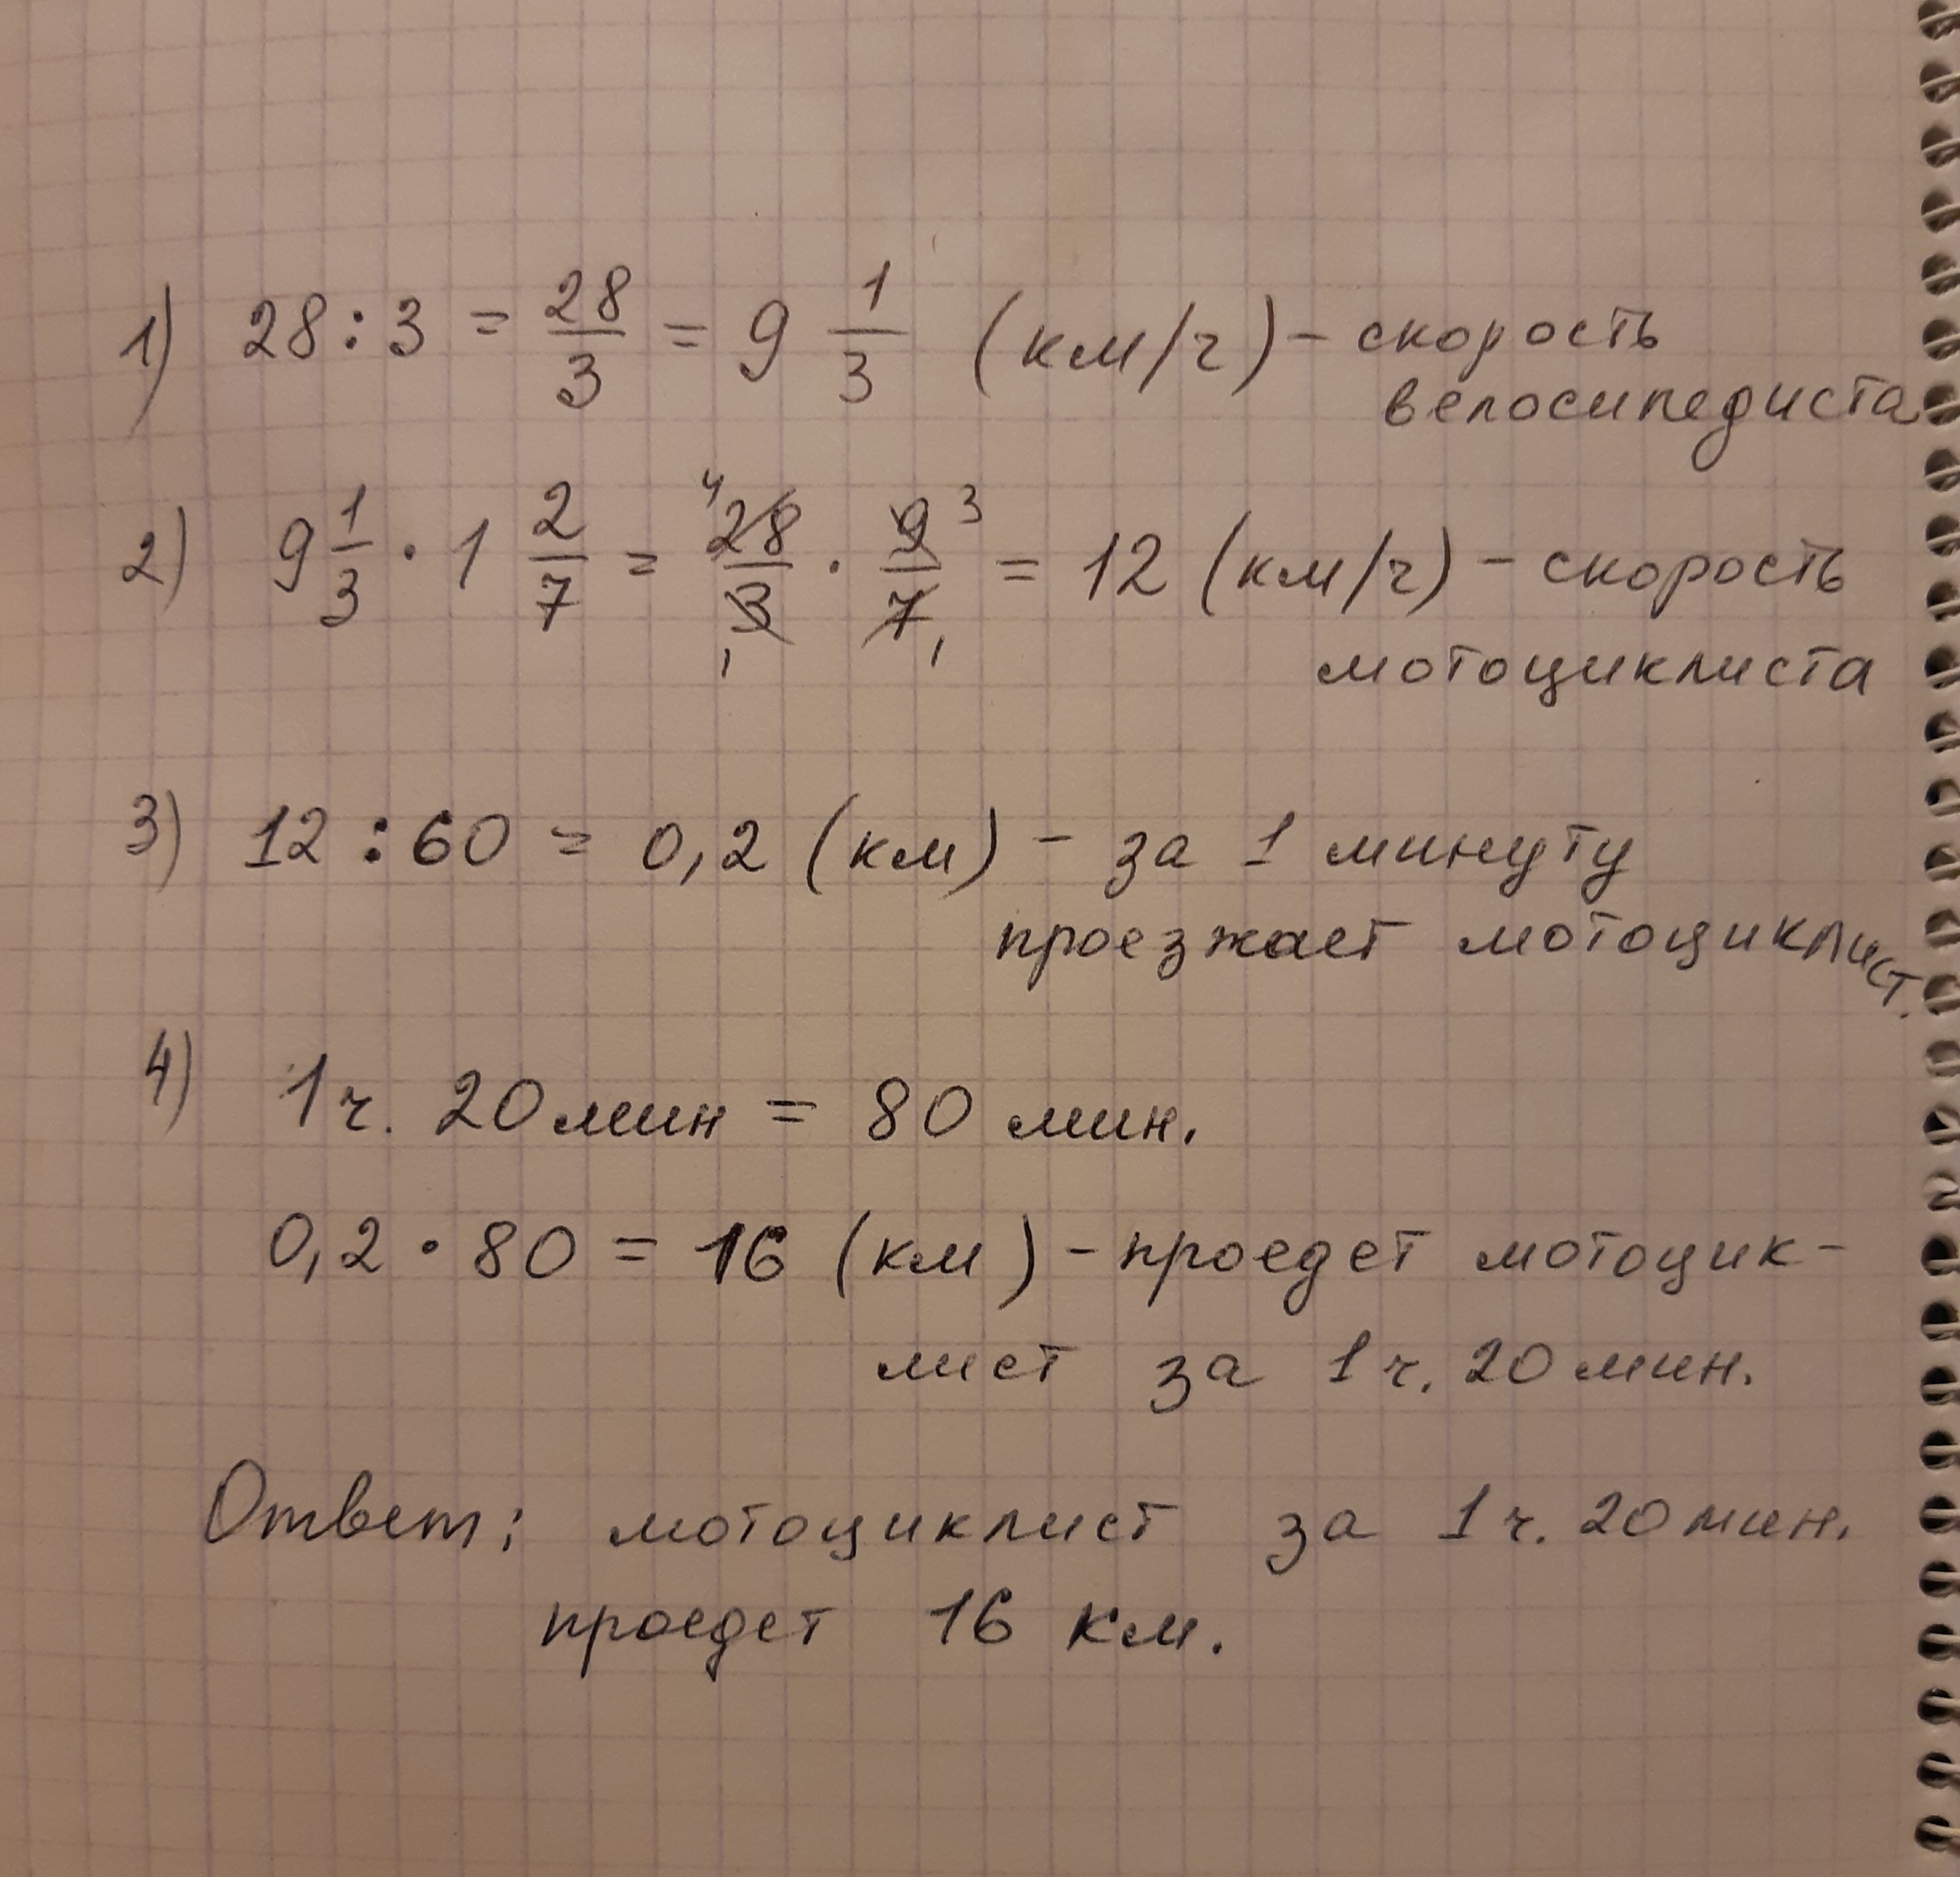 1) 28 : 3 = 28/3 = 9 1/3 (км/ч) – скорость
велосипедиста
2) 9 1/3 · 1 2/7 = ⁴28/3₁ · 9³/7₁ = 12 (км/ч) – скорость
мотоциклиста
3) 12 : 60 = 0,2 (км) – за 1 минуту
проезжает мотоциклист.
4) 1 ч. 20 мин = 80 мин.
0,2 · 80 = 16 (км) – проедет мотоцик-
лист за 1 ч. 20 мин.
Ответ: мотоциклист за 1 ч. 20 мин.
проедет 16 км.